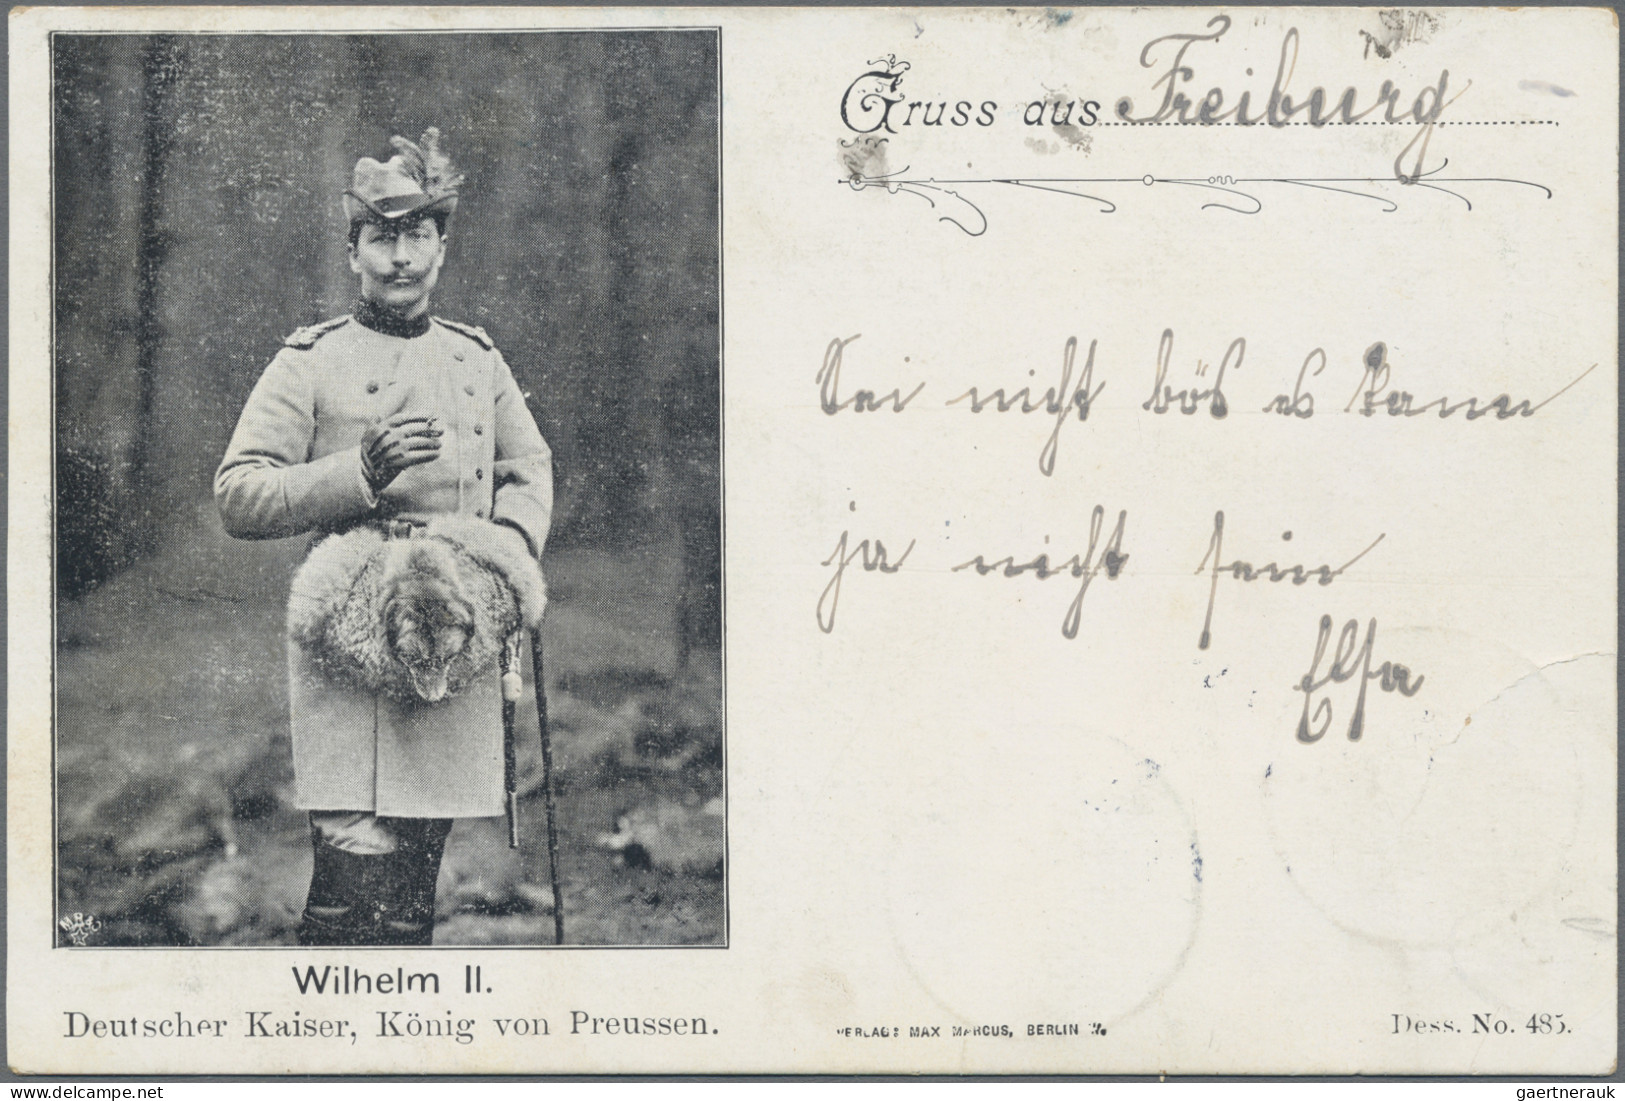 Gruss aus Freiburg
Sei nicht bös es kann
ja nicht sein
Elsa
Wilhelm II.
Deutscher Kaiser, König von Preussen.
VERLAG: MAX MARCUS, BERLIN
Dess. No. 485.
delcampe.net
gaertnerauk